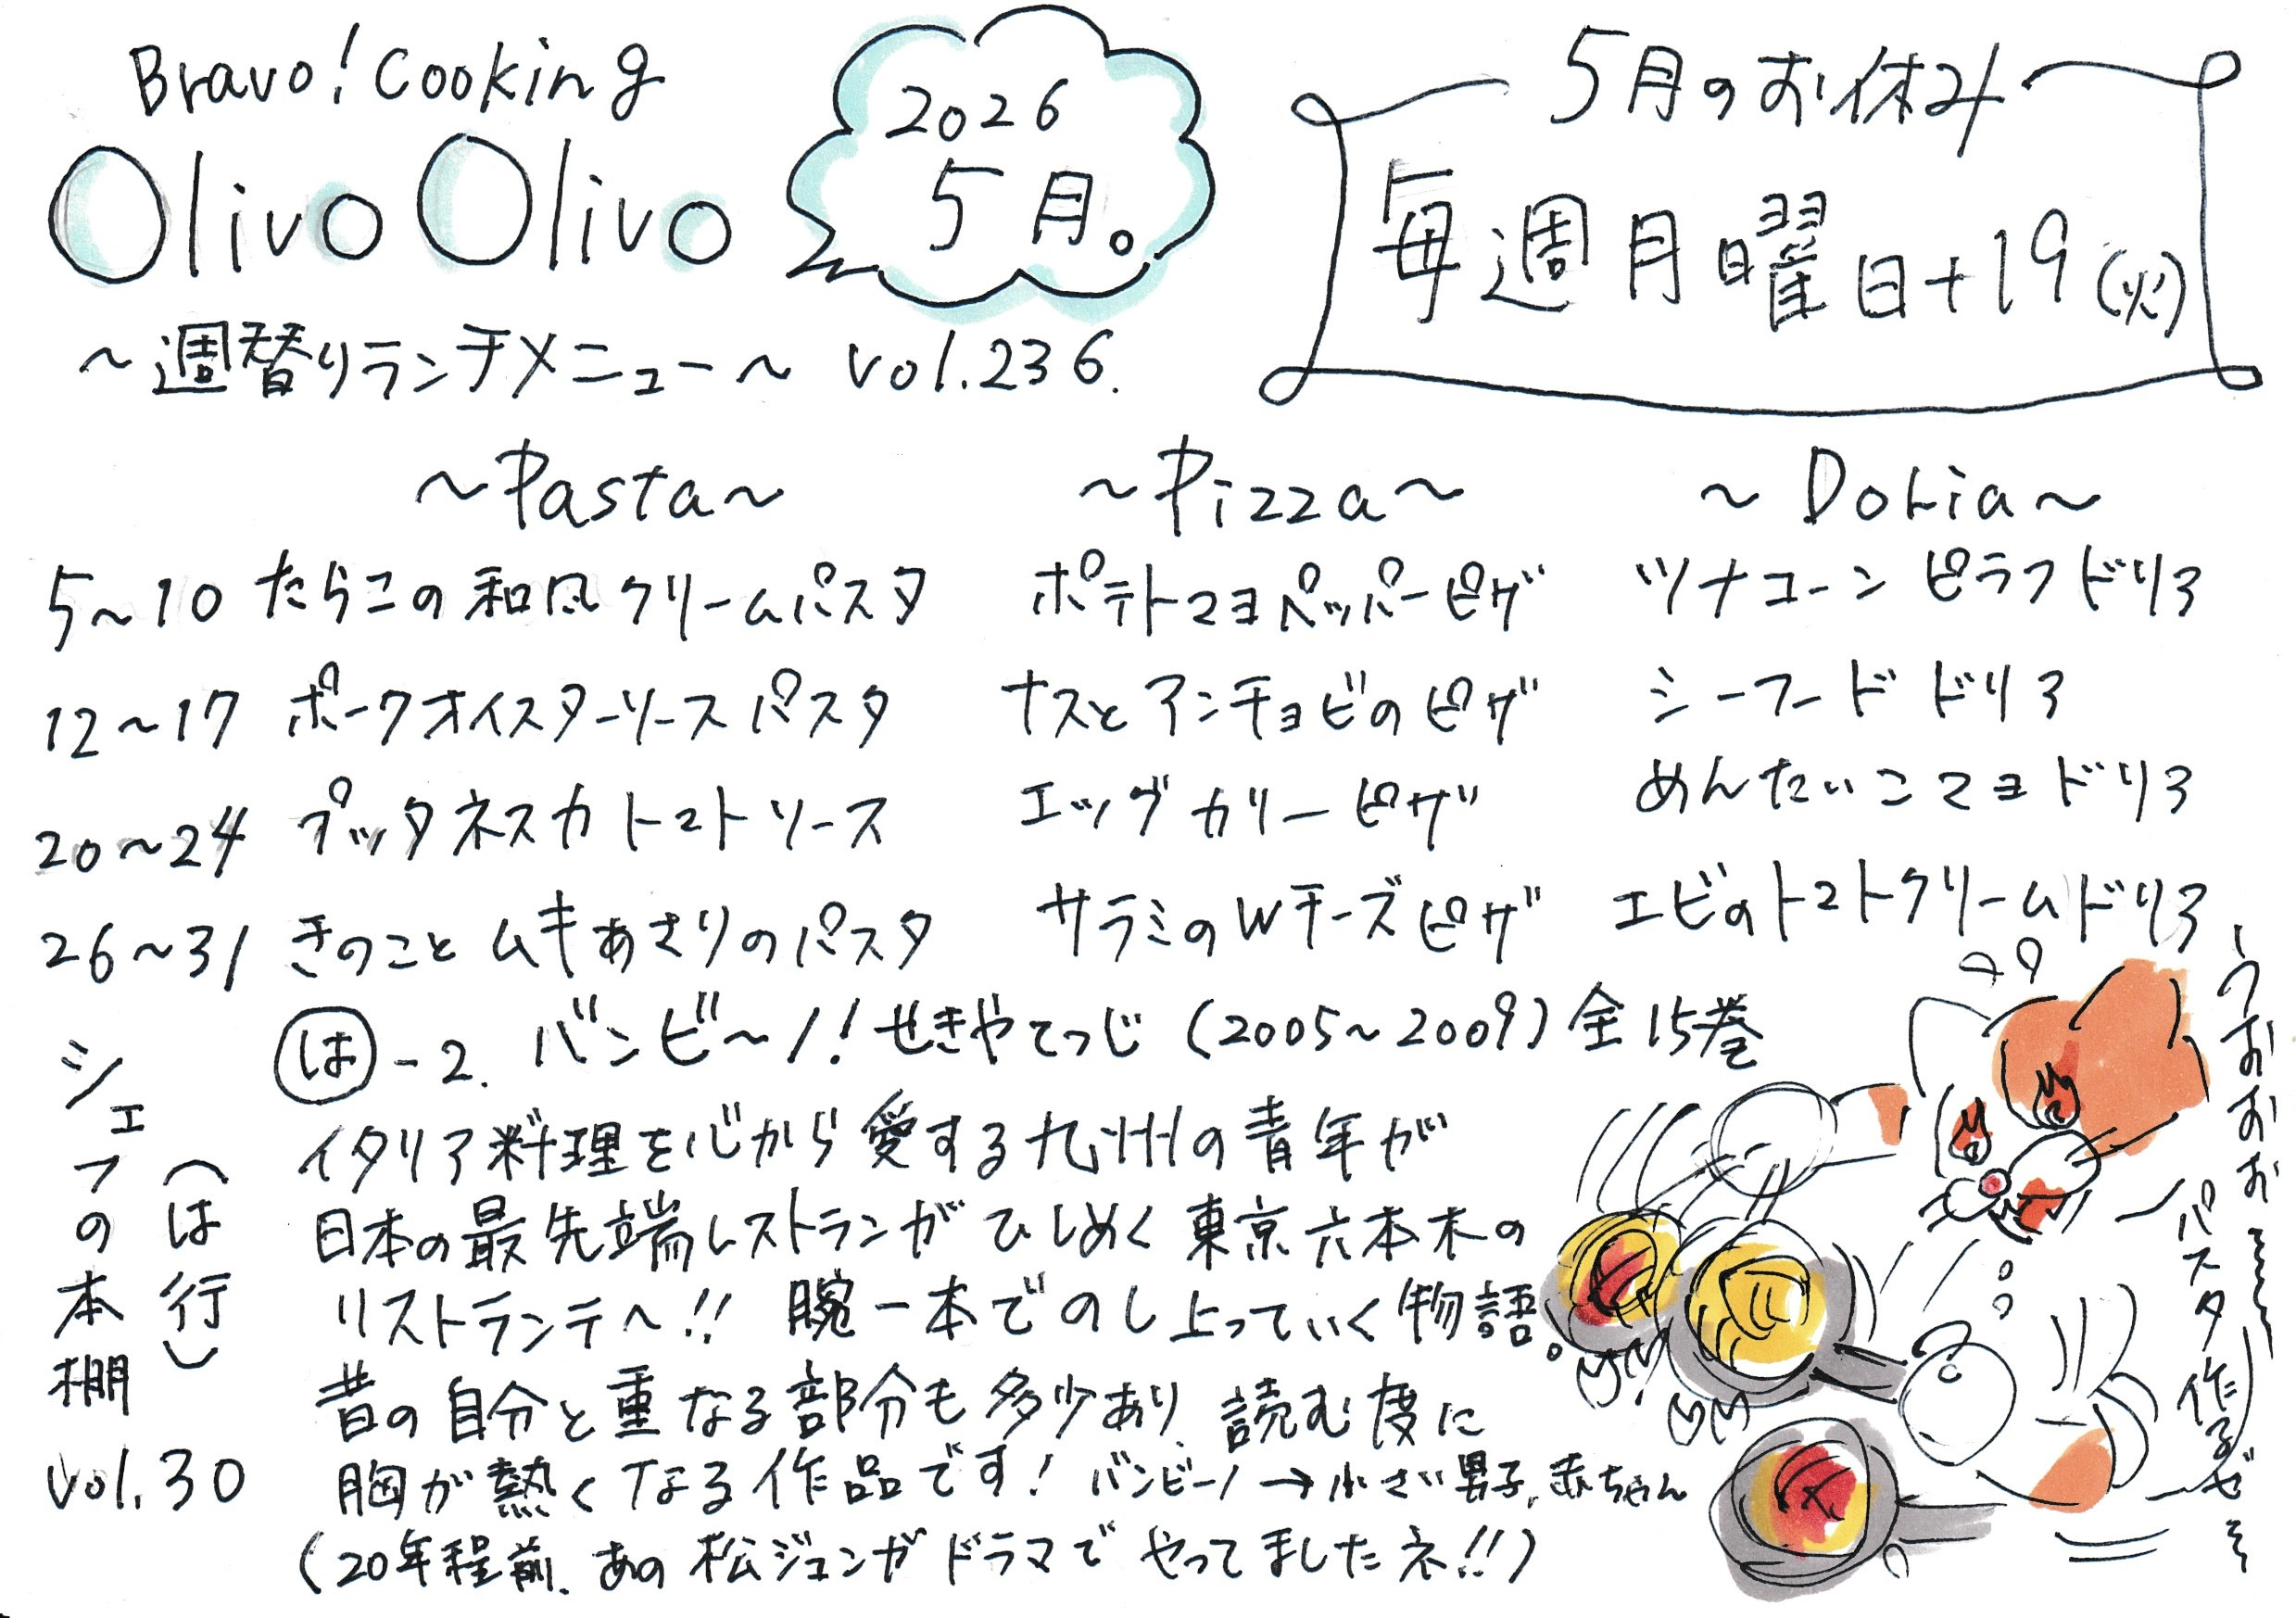 Bravo! Cooking
Olivo Olivo
2026
5月。
~週替りランチメニュー~ vol.236.
5月のお休み
毎週月曜日+19(火)
~Pasta~ ~Pizza~ ~Doria~
5~10 たらこの和風クリームパスタ ポテトマヨペッパーピザ ツナコーンピラフドリア
12~17 ポークオイスターソースパスタ ナスとアンチョビのピザ シーフードドリア
20~24 プッタネスカトマトソース エッグカリーピザ めんたいこマヨドリア
26~31 きのことムキあさりのパスタ サラミのWチーズピザ エビのトマトクリームドリア
シェフの本棚
(は行)
vol.30
は-2. バンビ~ノ! せきやてつじ (2005~2009) 全15巻
イタリア料理を心から愛する九州の青年が
日本の最先端レストランがひしめく東京六本木の
リストランテへ!! 腕一本でのし上っていく物語。
昔の自分と重なる部分も多少あり、読む度に
胸が熱くなる作品です! バンビーノ→小さい男子、赤ちゃん
(20年程前、あの松ジュンがドラマでやってましたネ!!)
うおおおお
パスタ作るぜぇ